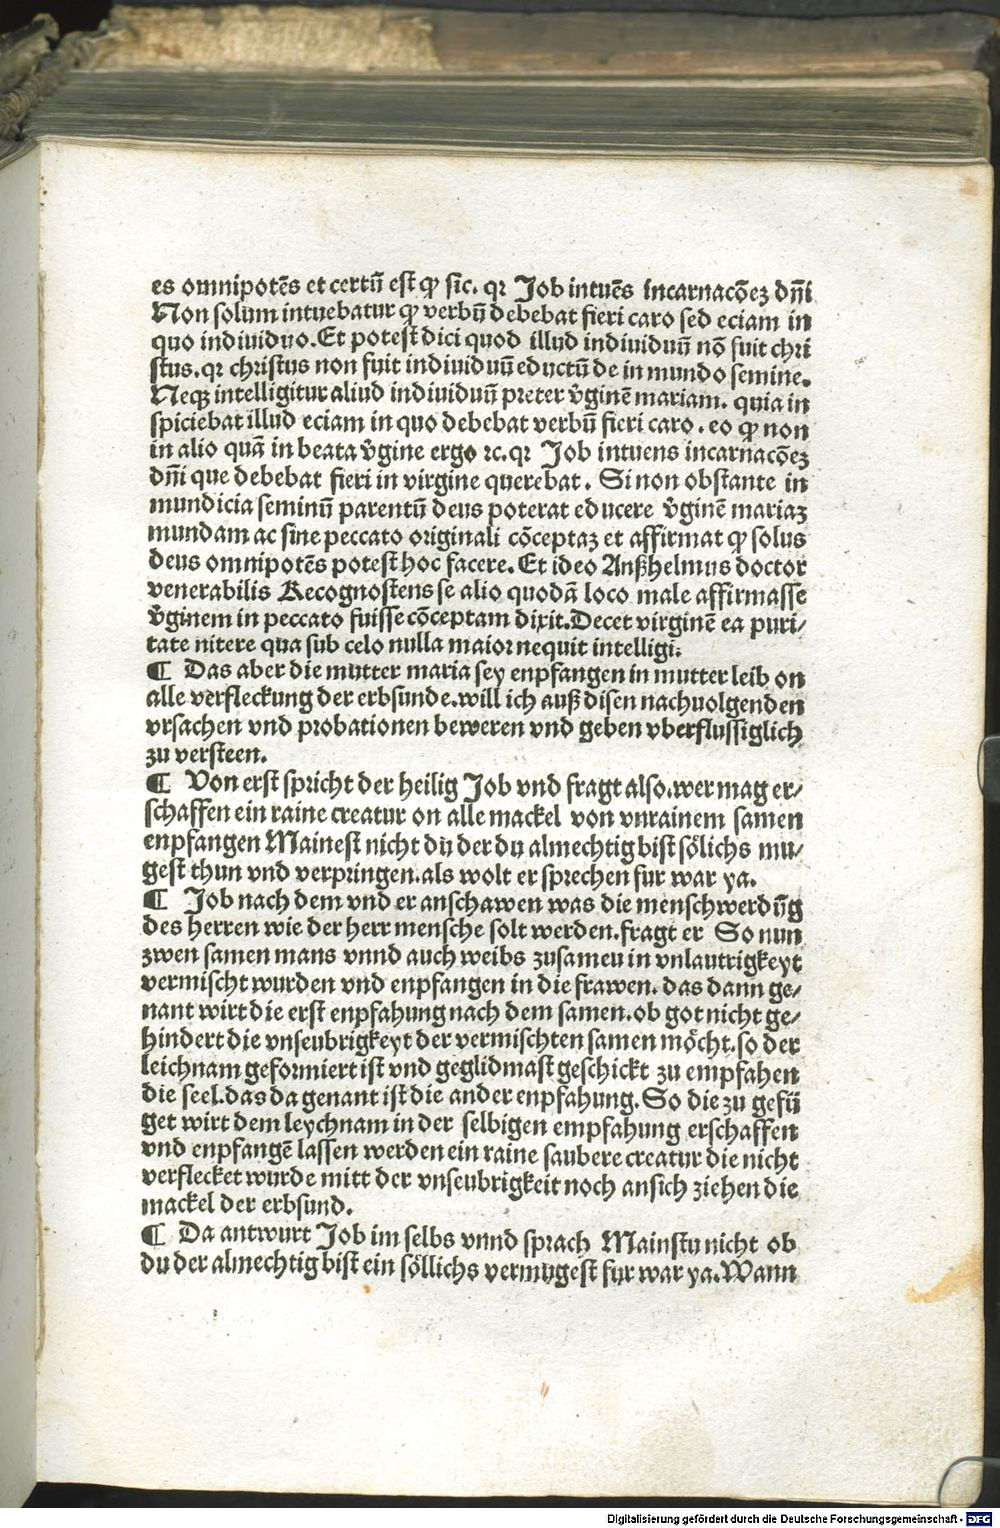 es omnipotēs et certū est ꝙ sic. qꝛ Job intuēs incarnacōeꝫ dn̄i
Non solum intuebatur ꝙ verbū debebat fieri caro sed eciam in
quo indiuiduo. Et potest dici quod illud indiuiduū nō fuit chri
stus. qꝛ christus non fuit indiuiduū eductū de inmundo semine.
Neqꝫ intelligitur aliud indiuiduū preter v̄ginē mariam. quia in
spiciebat illud eciam in quo debebat verbū fieri caro. eo ꝙ non
in alio quā in beata v̄gine ergo ⁊c. qꝛ Job intuens incarnacōeꝫ
dn̄i que debebat fieri in virgine querebat. Si non obstante in
mundicia seminū parentū deus poterat educere v̄ginē mariaꝫ
mundam ac sine peccato originali cōceptaꝫ et affirmat ꝙ solus
deus omnipotēs potest hoc facere. Et ideo Anßhelmus doctor
venerabilis Recognostens se alio quodā loco male affirmasse
v̄ginem in peccato fuisse cōceptam dixit. Decet virginē ea puri/
tate nitere qua sub celo nulla maior nequit intelligi.
¶ Das aber die mutter maria sey enpfangen in mutter leib on
alle verfleckung der erbsunde. will ich auß disen nachuolgenden
vrsachen vnd probationen beweren vnd geben vberflussiglich
zu versteen.
¶ Von erst spricht der heilig Job vnd fragt also. wer mag er/
schaffen ein raine creatur on alle mackel von vnrainem samen
enpfangen Mainest nicht dù der du almechtig bist sölichs mu/
gest thun vnd verpringen. als wolt er sprechen fur war ya.
¶ Job nach dem vnd er anschawen was die menschwerdūg
des herren wie der herr mensche solt werden. fragt er So nun
zwen samen mans vnnd auch weibs zusameu in vnlautrigkeyt
vermischt wurden vnd enpfangen in die frawen. das dann ge/
nant wirt die erst enpfahung nach dem samen. ob got nicht ge/
hindert die vnseubrigkeyt der vermischten samen möcht. so der
leichnam geformiert ist vnd geglidmast geschickt zu empfahen
die seel. das da genant ist die ander enpfahung. So die zu gefü
get wirt dem leychnam in der selbigen empfahung erschaffen
vnd enpfangē lassen werden ein raine saubere creatur die nicht
verflecket wurde mitt der vnseubrigkeit noch ansich ziehen die
mackel der erbsund.
¶ Da antwurt Job im selbs vnnd sprach Mainstu nicht ob
du der almechtig bist ein söllichs vermugest fur war ya. Wann
Digitalisierung gefördert durch die Deutsche Forschungsgemeinschaft - DFG